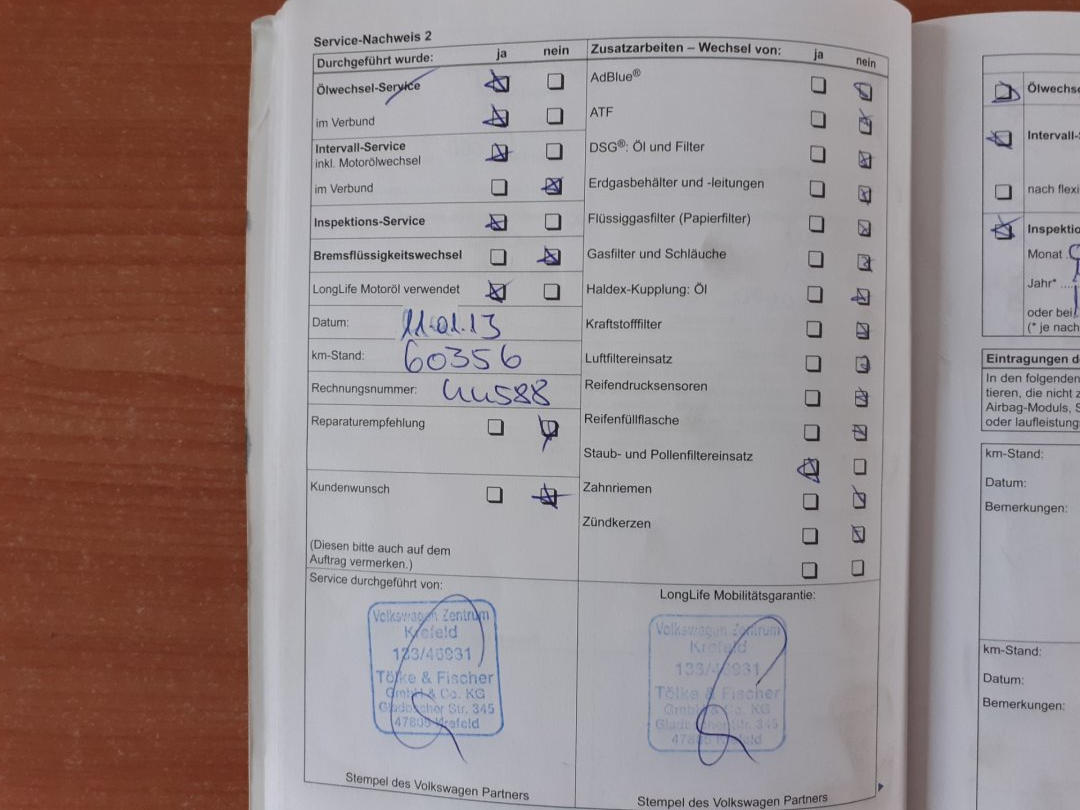 Service-Nachweis 2
Durchgeführt wurde: ja nein
Ölwechsel-Service
im Verbund
Intervall-Service
inkl. Motorölwechsel
im Verbund
Inspektions-Service
Bremsflüssigkeitswechsel
LongLife Motoröl verwendet
Datum: 11.01.13
km-Stand: 60356
Rechnungsnummer: 44588
Reparaturempfehlung
Kundenwunsch
(Diesen bitte auch auf dem
Auftrag vermerken.)
Zusatzarbeiten – Wechsel von: ja nein
AdBlue®
ATF
DSG®: Öl und Filter
Erdgasbehälter und -leitungen
Flüssiggasfilter (Papierfilter)
Gasfilter und Schläuche
Haldex-Kupplung: Öl
Kraftstofffilter
Luftfiltereinsatz
Reifendrucksensoren
Reifenfüllflasche
Staub- und Pollenfiltereinsatz
Zahnriemen
Zündkerzen
Service durchgeführt von:
Volkswagen Zentrum
Krefeld
133/46931
Tölke & Fischer
GmbH & Co. KG
Gladbacher Str. 345
47805 Krefeld
Stempel des Volkswagen Partners
LongLife Mobilitätsgarantie:
Volkswagen Zentrum
Krefeld
133/46931
Tölke & Fischer
GmbH & Co. KG
Gladbacher Str. 345
47805 Krefeld
Stempel des Volkswagen Partners
Ölwechse
Intervall-S
nach flexi
Inspektio
Monat
Jahr*
oder bei
(* je nach
Eintragungen d
In den folgenden
tieren, die nicht z
Airbag-Moduls, S
oder laufleistung
km-Stand:
Datum:
Bemerkungen:
km-Stand:
Datum:
Bemerkungen: